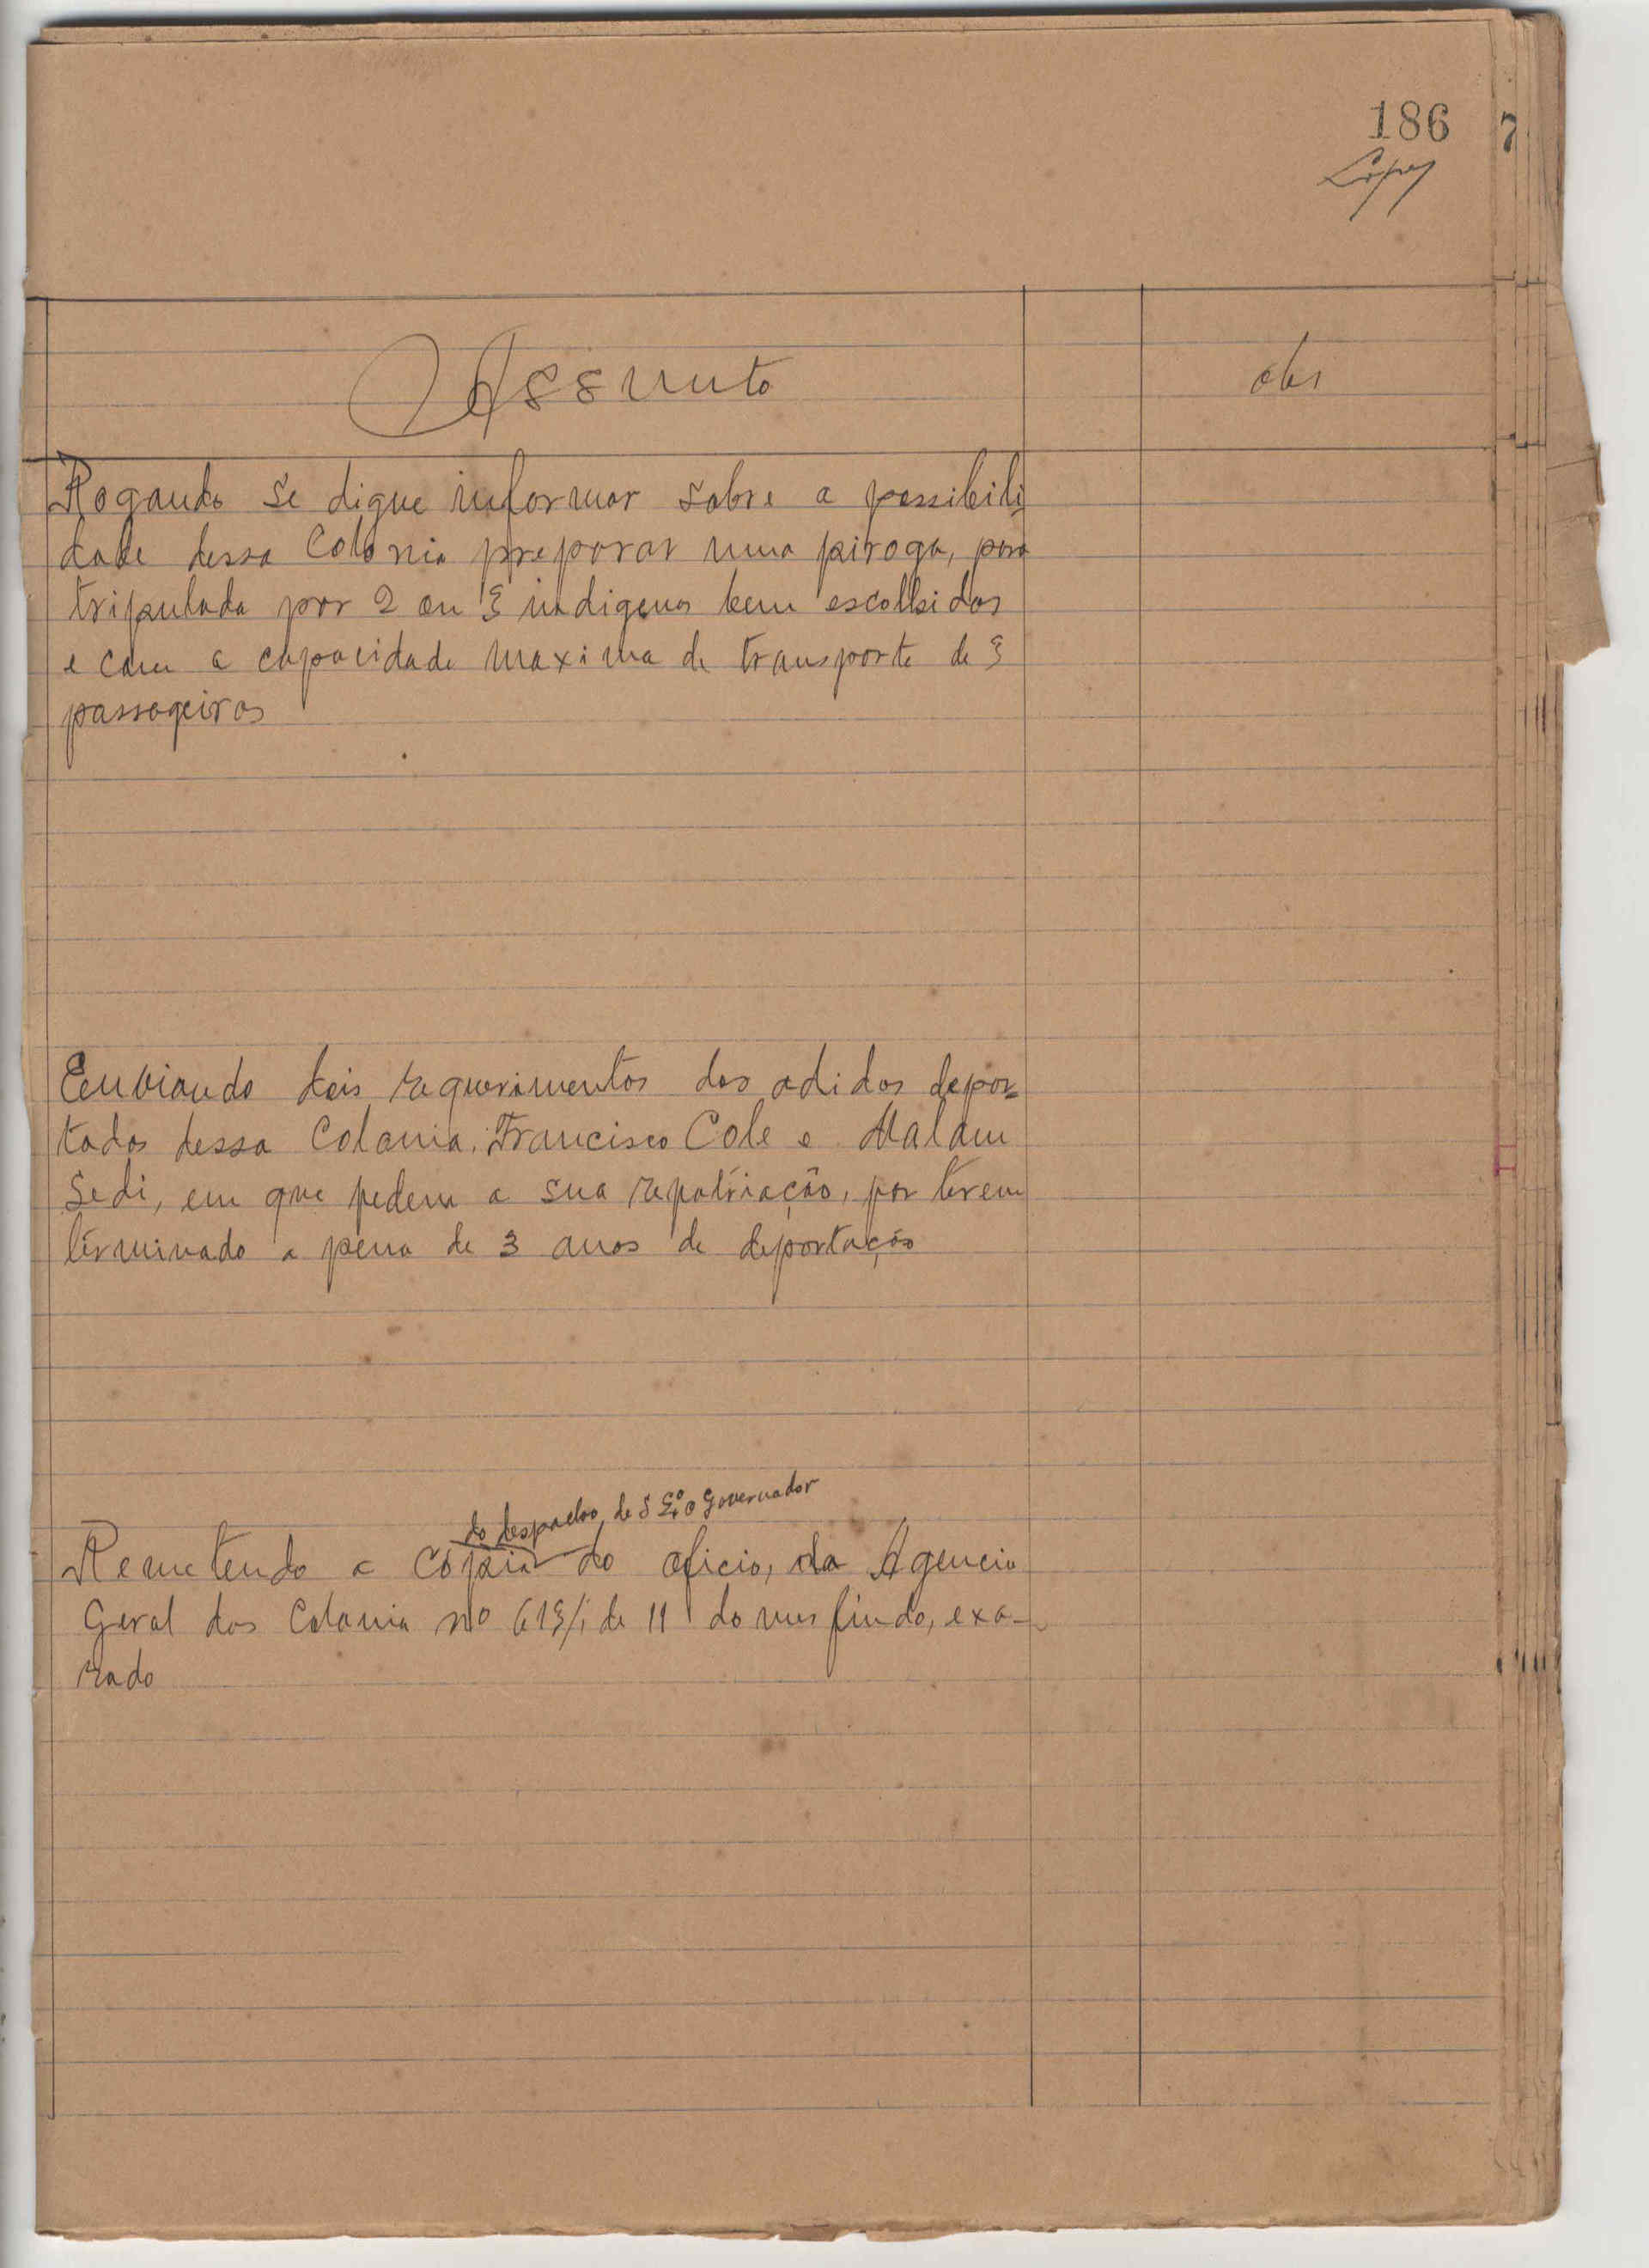 186
7
Lopes
Assunto
obs
Rogando se digne informar sobre a possibili
dade dessa Colonia preparar uma piroga, para
tripulada por 2 ou 3 indigenas bem escolhidos
e com a capacidade maxima de transporte de 3
passageiros
Enviando dois requerimentos dos adidos depor-
tados dessa Colonia, Francisco Cole e Malam
Sedi, em que pedem a sua repatriação, por terem
terminado a pena de 3 anos de deportação
do despacho, de S Exº o Governador
Remetendo a cópia do oficio, da Agencia
Geral das Colonia nº 613/i de 11 do mes findo, exa-
rado